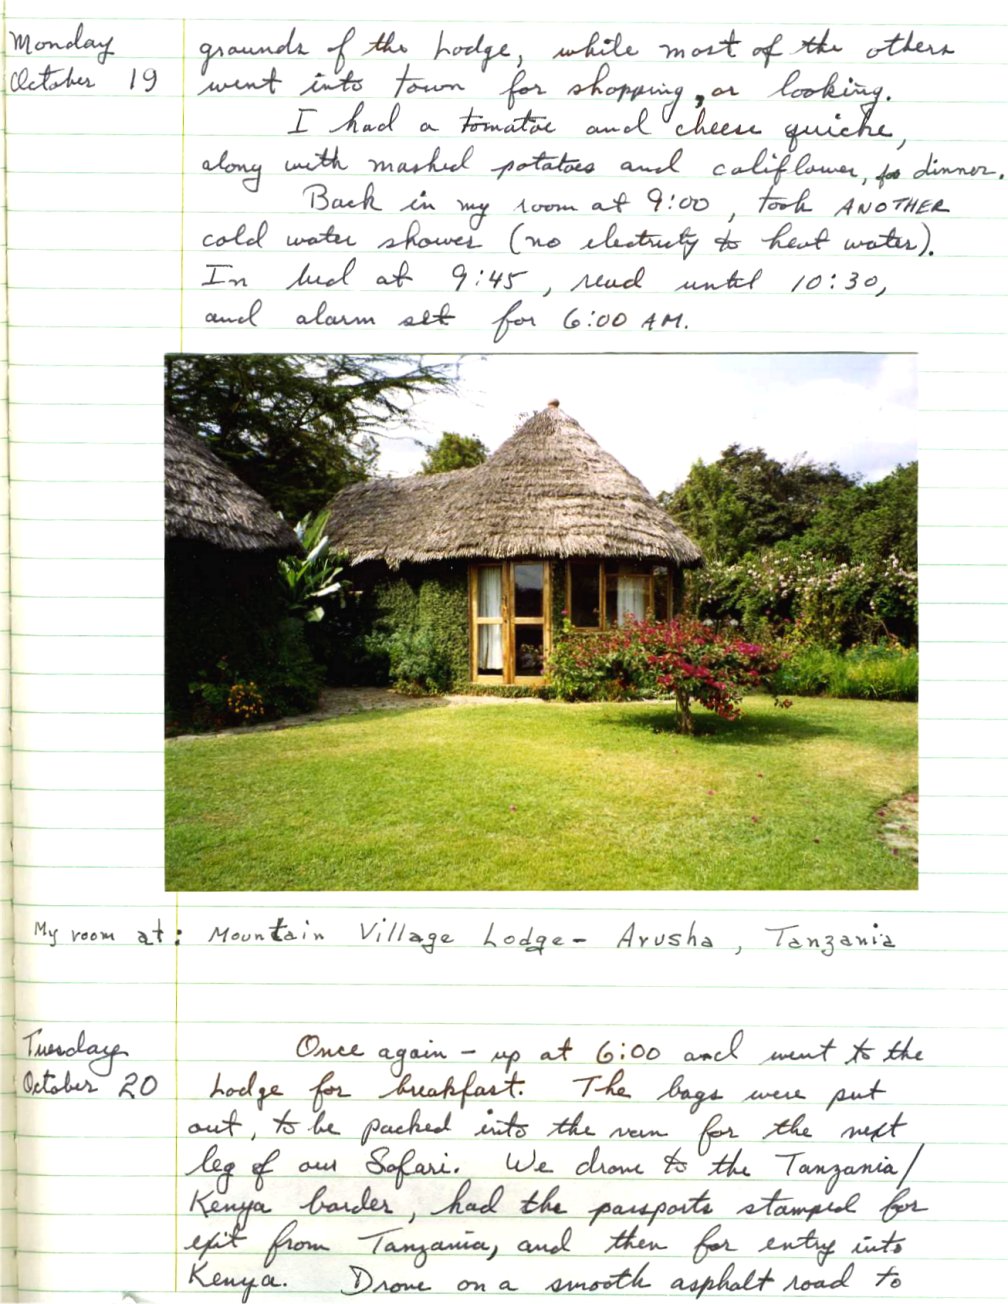 Monday
October 19
grounds of the Lodge, while most of the others
went into town for shopping, or looking.
I had a tomatoe and cheese quiche,
along with mashed potatoes and califlower, for dinner.
Back in my room at 9:00, took ANOTHER
cold water shower (no electricty to heat water).
In bed at 9:45, read until 10:30,
and alarm set for 6:00 AM.
My room at: Mountain Village Lodge - Arusha, Tanzania
Tuesday
October 20
Once again - up at 6:00 and went to the
Lodge for breakfast. The bags were put
out, to be packed into the van for the next
leg of our Safari. We drove to the Tanzania/
Kenya border, had the passports stamped for
exit from Tanzania, and then for entry into
Kenya. Drove on a smooth asphalt road to